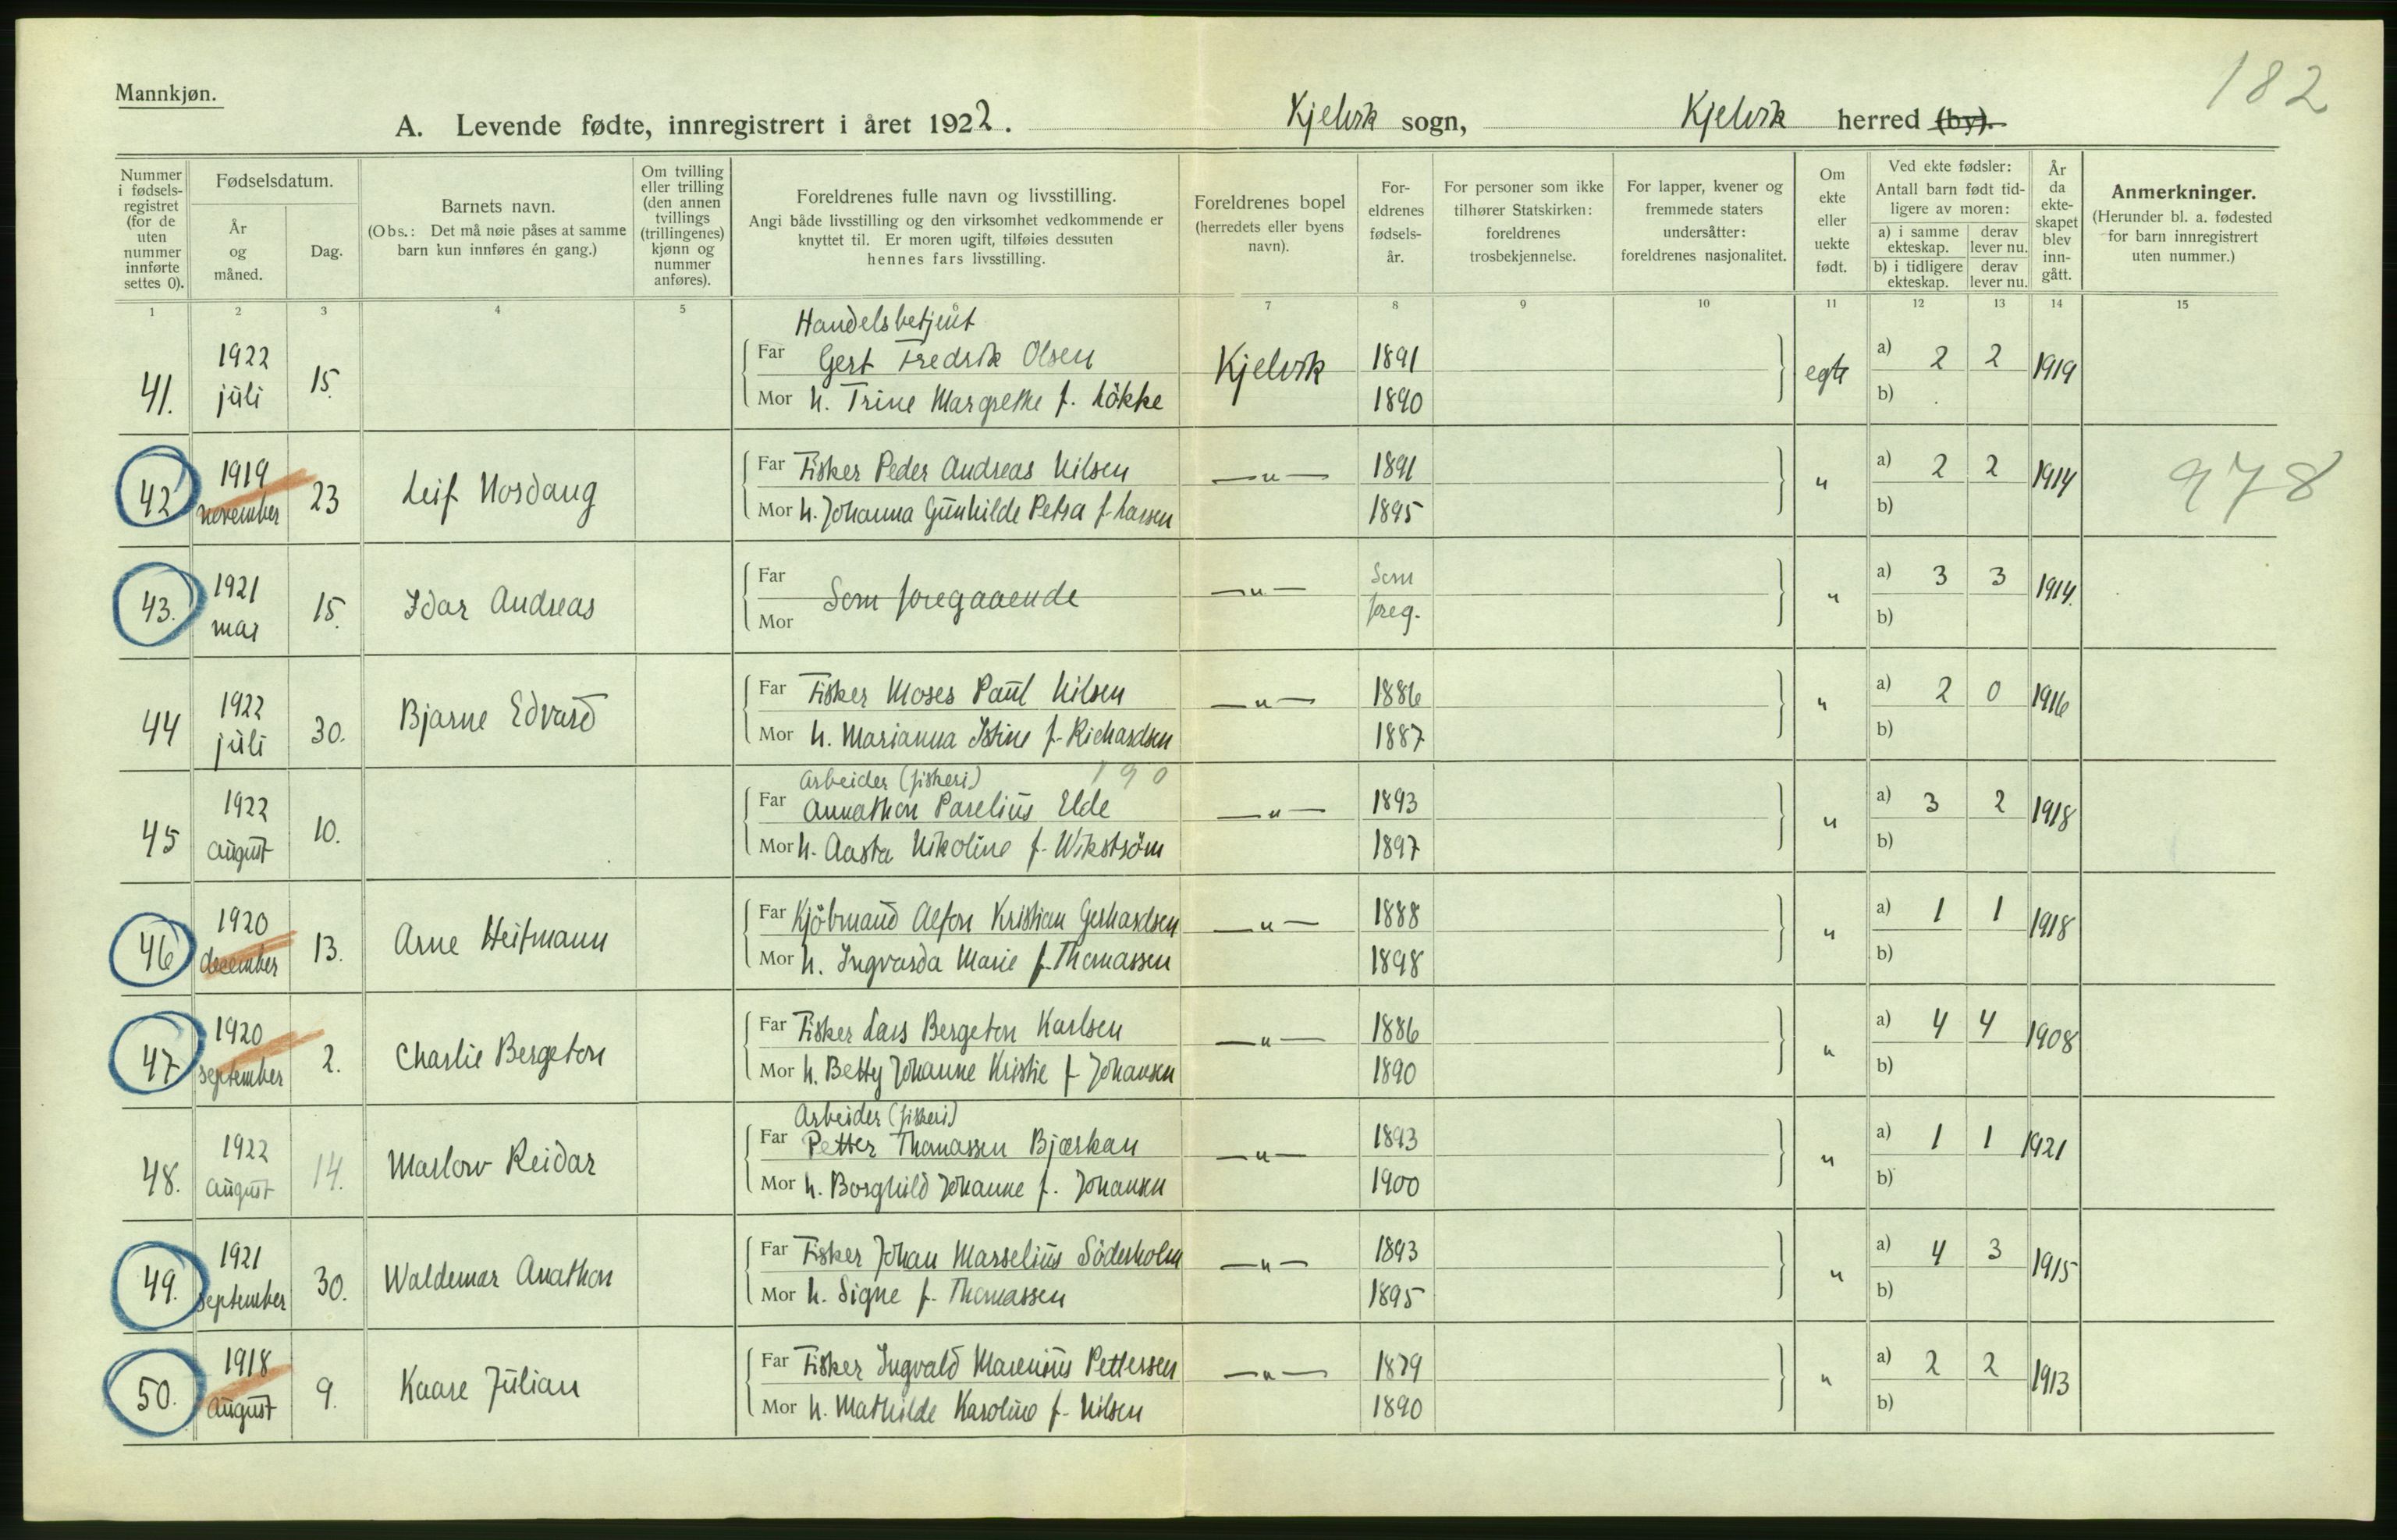 182
Mannkjøn.
A. Levende fødte, innregistrert i året 1922. Kjelvik sogn, Kjelvik herred (by).
Nummer i fødselsregistret (for de uten nummer innførte settes 0).
Fødselsdatum.
År og måned.
Dag.
Barnets navn.
(Obs.: Det må nøie påses at samme barn kun innføres én gang.)
Om tvilling eller trilling (den annen tvillings (trillingenes) kjønn og nummer anføres).
Foreldrenes fulle navn og livsstilling.
Angi både livsstilling og den virksomhet vedkommende er knyttet til. Er moren ugift, tilføies dessuten hennes fars livsstilling.
Foreldrenes bopel (herredets eller byens navn).
Foreldrenes fødselsår.
For personer som ikke tilhører Statskirken: foreldrenes trosbekjennelse.
For lapper, kvener og fremmede staters undersåtter: foreldrenes nasjonalitet.
Om ekte eller uekte født.
Ved ekte fødsler:
Antall barn født tidligere av moren:
a) i samme ekteskap. derav lever nu.
b) i tidligere ekteskap. derav lever nu.
År da ekteskapet blev inngått.
Anmerkninger.
(Herunder bl. a. fødested for barn innregistrert uten nummer.)
1 2 3 4 5 6 7 8 9 10 11 12 13 14 15
Handelsbetjent
41. 1922 juli 15. Far Gert Fredrik Olsen Kjelvik 1891 egte a) 2 2 1919
Mor h. Trine Margrethe f. Lökke 1890 b)
42 1919 november 23 Leif Nordaug Far Fisker Peder Andreas Nilsen —"— 1891 " a) 2 2 1914 978
Mor h. Johanna Gunhilde Petra f. Larsen 1895 b)
43. 1921 mar 15. Idar Andreas Far Mor Som foregaaende —"— Som foreg. " a) 3 3 1914.
b)
44 1922 juli 30. Bjarne Edvard Far Fisker Moses Paul Nilsen —"— 1886 " a) 2 0 1916
Mor h. Marianna Istine f. Richardsen 1887 b)
Arbeider (fiskeri) 190
45 1922 august 10. Far Annathon Parelius Elde —"— 1893 " a) 3 2 1918
Mor h. Aasta Nikoline f. Wikström 1897 b)
46 1920 december 13. Arne Heitmann Far Kjöbmand Alfon Kristian Gerhardsen —"— 1888 " a) 1 1 1918
Mor h. Ingvarda Marie f. Thomassen 1898 b)
47 1920 september 2. Charlie Bergeton Far Fisker Lars Bergeton Karlsen —"— 1886 " a) 4 4 1908
Mor h. Betty Johanne Kristie f. Johansen 1890 b)
Arbeider (fiskeri)
48. 1922 august 14. Marlow Reidar Far Petter Thomassen Bjærkan —"— 1893 " a) 1 1 1921
Mor h. Borghild Johanne f. Johansen 1900 b)
49. 1921 september 30. Waldemar Anathon Far Fisker Johan Marselius Söderholm —"— 1893 " a) 4 3 1915
Mor h. Signe f. Thomassen 1895 b)
50. 1918 august 9. Kaare Julian Far Fisker Ingvald Marenius Pettersen —"— 1879 " a) 2 2 1913
Mor h. Mathilde Karoline f. Nilsen 1890 b)